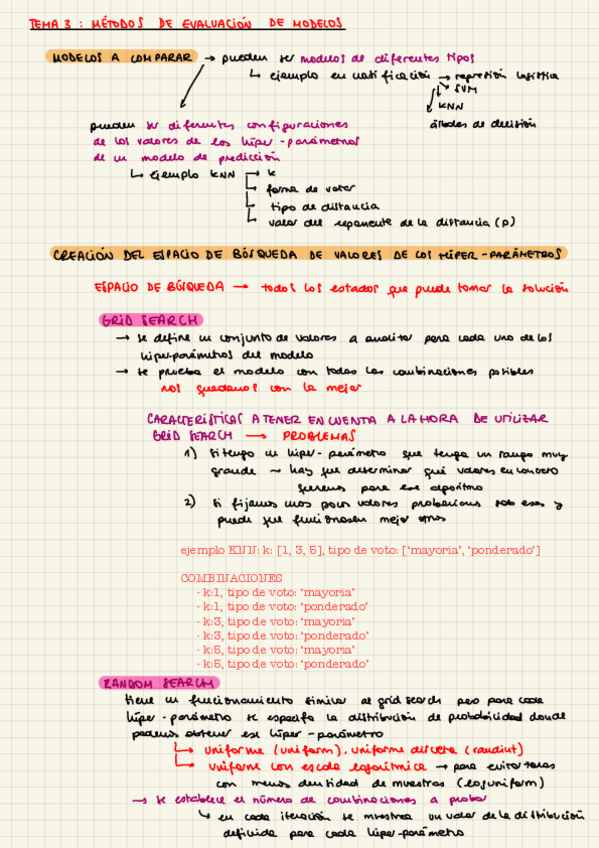 TEMA 3 : MÉTODOS DE EVALUACIÓN DE MODELOS
MODELOS A COMPARAR → pueden ser modelos de diferentes tipos
↳ ejemplo en clasificación → regresión logística
SVM
KNN
árboles de decisión
pueden ser diferentes configuraciones
de los valores de los híper-parámetros
de un modelo de predicción
↳ ejemplo KNN → k
forma de votar
tipo de distancia
valor del exponente de la distancia (p)
CREACIÓN DEL ESPACIO DE BÚSQUEDA DE VALORES DE LOS HÍPER-PARÁMETROS
ESPACIO DE BÚSQUEDA → todos los estados que puede tomar la solución
GRID SEARCH
→ se define un conjunto de valores a analizar para cada uno de los
híper-parámetros del modelo
→ se prueba el modelo con todas las combinaciones posibles
nos quedamos con la mejor
CARACTERÍSTICAS A TENER EN CUENTA A LA HORA DE UTILIZAR
GRID SEARCH → PROBLEMAS
1) Si tengo un híper-parámetro que tenga un rango muy
grande → hay que determinar qué valores en concreto
queremos para ese algoritmo
2) Si fijamos unos pocos valores probaríamos solo esos y
puede que funcionasen mejor otros
ejemplo KNN: k: [1, 3, 5], tipo de voto: ['mayoría', 'ponderado']
COMBINACIONES
- k:1, tipo de voto: 'mayoría'
- k:1, tipo de voto: 'ponderado'
- k:3, tipo de voto: 'mayoría'
- k:3, tipo de voto: 'ponderado'
- k:5, tipo de voto: 'mayoría'
- k:5, tipo de voto: 'ponderado'
RANDOM SEARCH
tiene un funcionamiento similar al grid search pero para cada
híper-parámetro se especifica la distribución de probabilidad donde
podemos obtener ese híper-parámetro
↳ uniforme (uniform), uniforme discreta (randint)
↳ uniforme con escala logarítmica → para evitar zonas
con menos densidad de muestras (loguniform)
→ se establece el número de combinaciones a probar
↳ en cada iteración se muestrea un valor de la distribución
definida para cada híper-parámetro